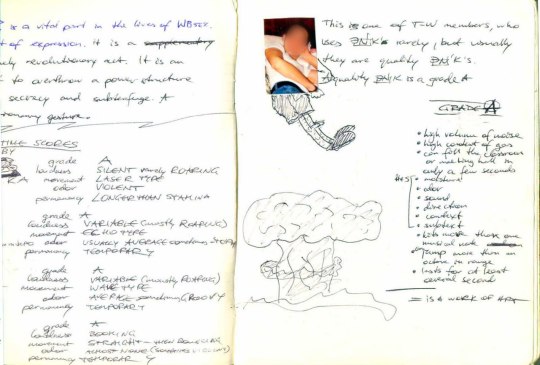 is a vital part in the lives of
of expression. it is a supplementary
revolutionary act. It is an
to overthrow a power structure
secrecy and subterfuge. A
gesture.
TIME SCORES
BY
grade A
loudness SILENT rarely ROARING
movement LASER TYPE
odor VIOLENT
permanency LONGER THAN STAMINA
grade A
loudness VARIABLE (mostly ROARING)
movement ECHO TYPE
odor USUALLY AVERAGE sometimes
permanency TEMPORARY
grade A
loudness VARIABLE (mostly ROARING)
movement WAVE TYPE
odor AVERAGE sometimes GROOVY
permanency TEMPORARY
grade A
loudness BOOMING
movement STRAIGHT - when BOUNCING
odor ALMOST NONE (sometimes VIOLENT)
permanency TEMPORARY
This is one of T-W members, who
uses rarely, but usually
they are quality
A quality is a grade A
GRADE A
• high volume of noise
• high content of gas
• can fill the classroom
or meeting hall in
only a few seconds
has
• moisture
• odor
• sound
• direction
• context
• subtext
• hits more than one
musical note
• jump more than an
octave in range
• lasts for at least
several second
= is a WORK OF ART